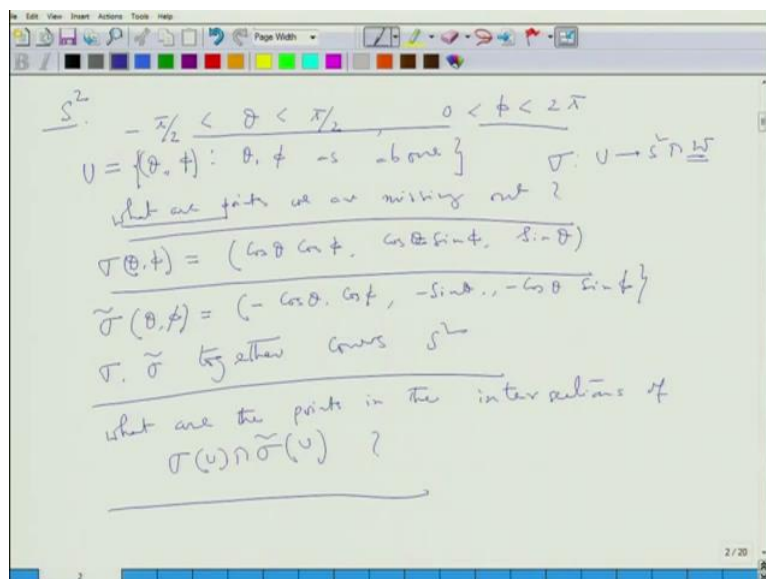 File Edit View Insert Actions Tools Help
Page Width
S²:
- π/2 < θ < π/2, 0 < ϕ < 2π
U = {(θ, ϕ) : θ, ϕ as above} σ: U → S² ∩ W
what are points we are missing out ?
σ(θ, ϕ) = (Cos θ Cos ϕ, Cos θ Sin ϕ, Sin θ)
σ̃(θ, ϕ) = (- Cos θ. Cos ϕ, - Sin θ., - Cos θ Sin ϕ}
σ. σ̃ together covers S²
what are the points in the intersections of
σ(U) ∩ σ̃(U) ?
2 / 20
2